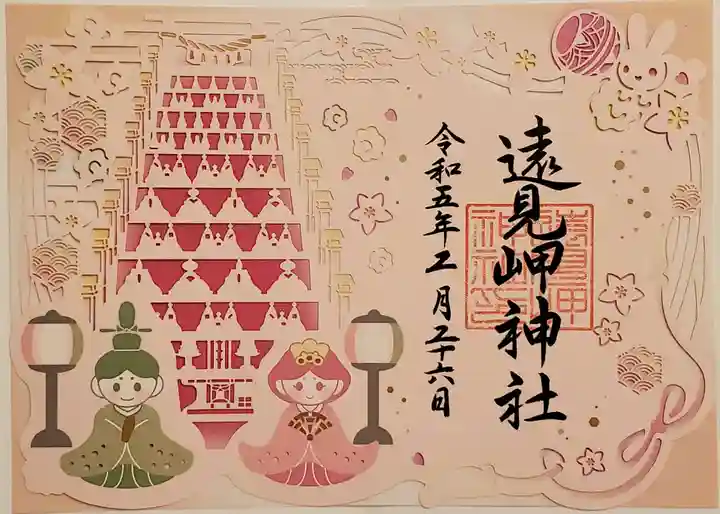 遠見岬神社
令和五年二月二十六日